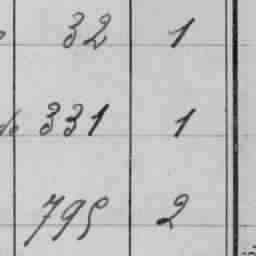 32 1
331 1
795 2